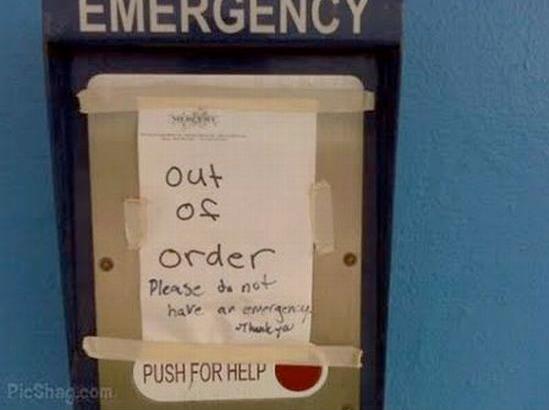 EMERGENCY
out
of
order
Please do not
have an emergency.
Thank you
PUSH FOR HELP
PicShag.com